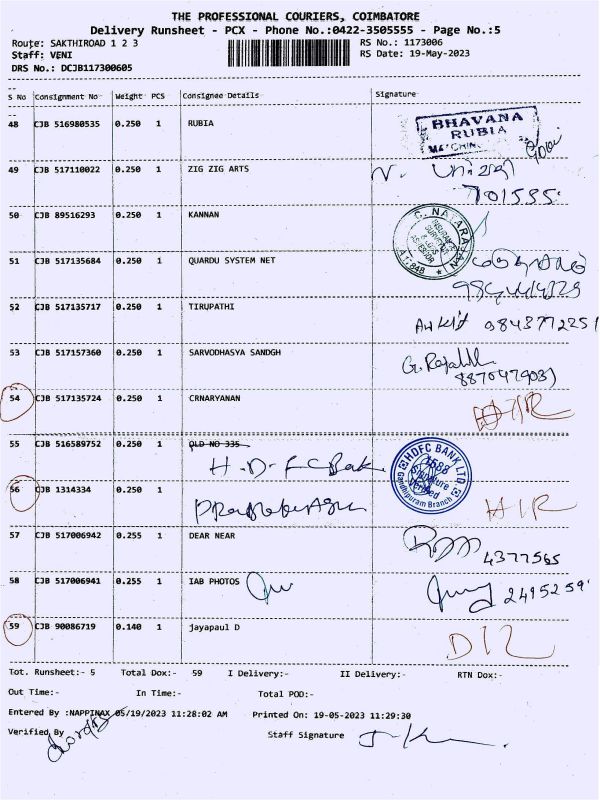 THE PROFESSIONAL COURIERS, COIMBATORE
Delivery Runsheet - PCX - Phone No.:0422-3505555 - Page No.:5
Route: SAKTHIROAD 1 2 3
RS No.: 1173006
Staff: VENI
RS Date: 19-May-2023
DRS No.: DCJB117300605
S No Consignment No Weight PCS Consignee Details Signature
48 CJB 516980535 0.250 1 RUBIA
BHAVANA
RUBIA
49 CJB 517110022 0.250 1 ZIG ZIG ARTS
701555
50 CJB 89516293 0.250 1 KANNAN
C. NATARAJAN
51 CJB 517135684 0.250 1 QUARDU SYSTEM NET
52 CJB 517135717 0.250 1 TIRUPATHI
Ankit 9843772251
53 CJB 517157360 0.250 1 SARVODHASYA SANDGH
54 CJB 517135724 0.250 1 CRNARYANAN
55 CJB 516589752 0.250 1 OLD NO 335
H.D.F.C Bak
HDFC BANK LTD
Signature
Verified
Gandhipuram Branch
56 CJB 1314334 0.250 1
57 CJB 517006942 0.255 1 DEAR NEAR
4377565
58 CJB 517006941 0.255 1 IAB PHOTOS
2495259
59 CJB 90086719 0.140 1 jayapaul D
Tot. Runsheet:- 5 Total Dox:- 59 I Delivery:- II Delivery:- RTN Dox:-
Out Time:- In Time:- Total POD:-
Entered By :NAPPINAX 05/19/2023 11:28:02 AM Printed On: 19-05-2023 11:29:30
Verified By
Staff Signature